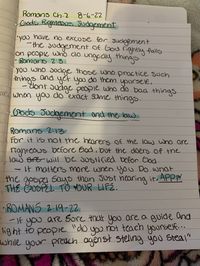 Romans Ch. 2 8-6-22
Gods Righteous Judgement
you have no excuse for Judgement
- the Judgement of God rightly falls
on people who do ungodly things
- Romans 2:3
you who Judge those who practice such
things and yet you do them yourself.
- dont Judge people who do bad things
when you do exact same things.
Gods Judgement and the law
Romans 2:13
for it is not the hearers of the law who are
righteous before God, but the doers of the
law who will be justified before God
- it matters more when you Do what
the gospel says than Just hearing it. APPLY
THE GOSPEL TO YOUR LIFE.
ROMANS 2:19-22
- if you are sure that you are a guide and
light to people "do you not teach yourself...
while your preach agenst steling you steal"